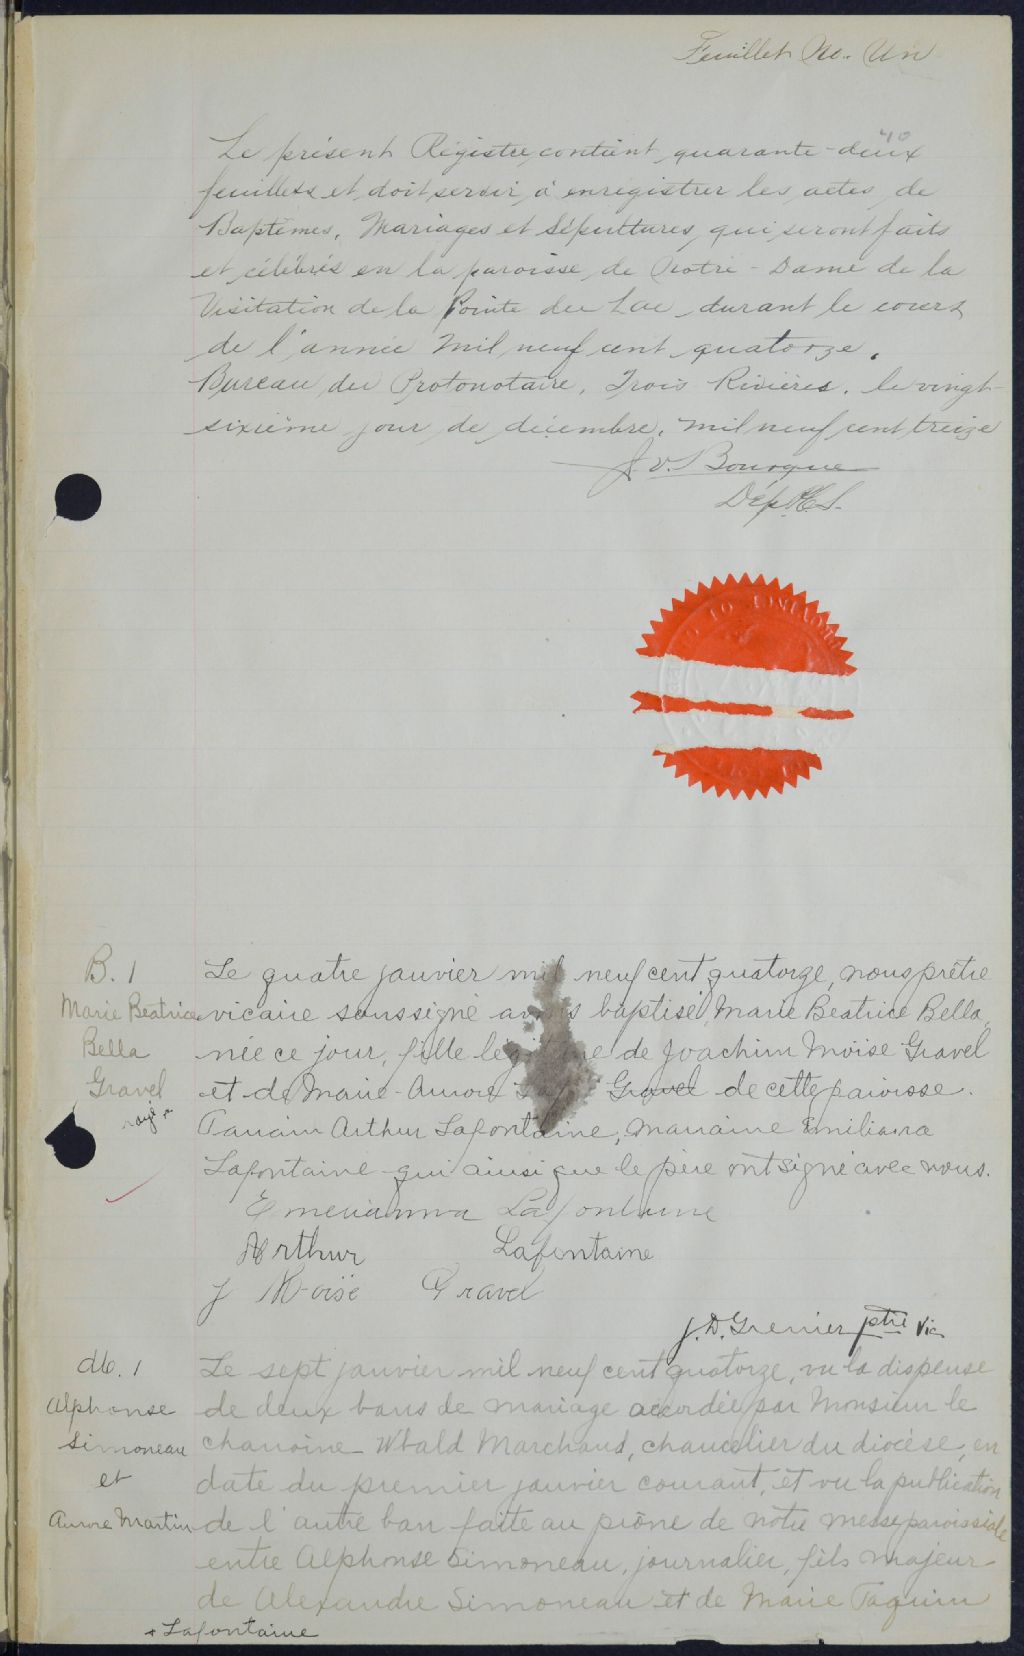 Feuillet No. Un
40
Le présent Régistre contient quarante-deux
feuillets et doit servir à enregistrer les actes de
Baptêmes, Mariages et Sépultures, qui seront faits
et célébrés en la paroisse de Notre-Dame de la
Visitation de la Pointe du Lac, durant le cours
de l'année mil neuf cent quatorze.
Bureau du Protonotaire, Trois Rivières, le vingt-
sixième jour de décembre, mil neuf cent treize
J. V. Bourque
Dép.
B. 1
Marie Beatrice
Bella
Gravel
Le quatre janvier mil neuf cent quatorze, nous prêtre
vicaire soussigné avons baptisé Marie Beatrice Bella,
née ce jour, fille légitime de Joachim Moïse Gravel
et de Marie-Aurore Gravel de cette paroisse.
Parrain Arthur Lafontaine, marraine Emiliana
Lafontaine qui ainsi que le père ont signé avec nous.
Emerianna Lafontaine
Arthur Lafontaine
J Moïse Gravel
J. D. Grenier ptre Vic
M. 1
Alphonse
Simoneau
et
Aurore Martin
Le sept janvier mil neuf cent quatorze, vu la dispense
de deux bans de mariage accordée par Monsieur le
chanoine Ubald Marchand, chancelier du diocèse, en
date du premier janvier courant, et vu la publication
de l'autre ban faite au prône de notre messe paroissiale
entre Alphonse Simoneau, journalier, fils majeur
de Alexandre Simoneau et de Marie Paquin
+ Lafontaine